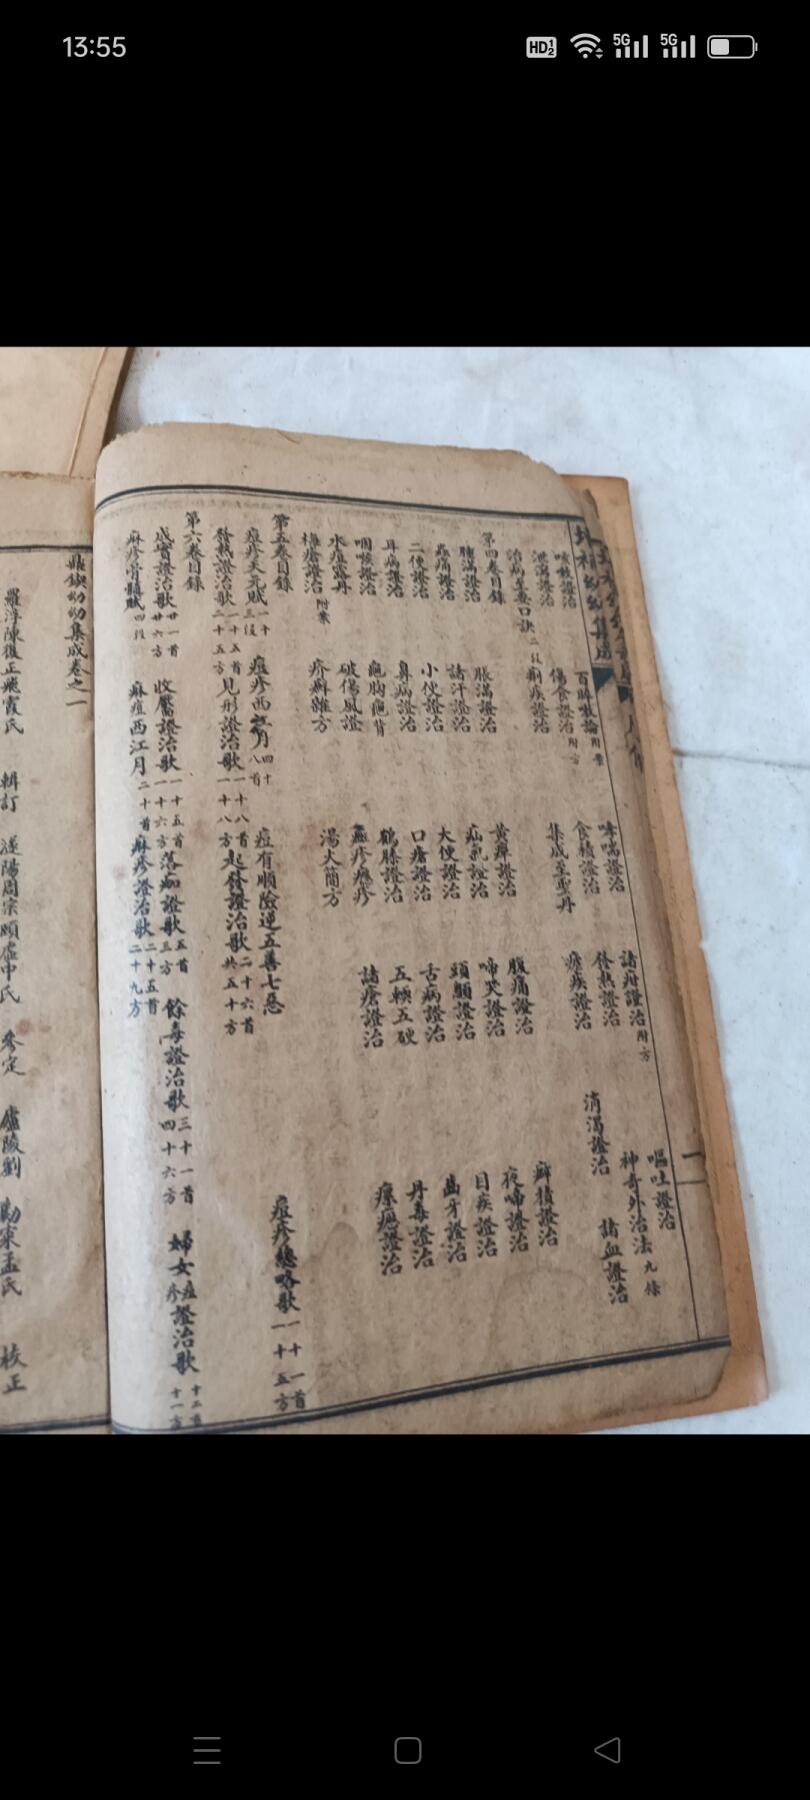 13:55
HD 5G 5G
咳嗽證治 百晬嗽論附案 哮喘證治 諸疳證治附方 嘔吐證治
泄瀉證治 傷食證治附方 食積證治 發熱證治 神奇外治法九條
治病至要口訣二段 痢疾證治 集成至聖丹 瘧疾證治 消渴證治 諸血證治
第四卷目錄
腫滿證治 脹滿證治 黃疸證治 腹痛證治 癖積證治
蟲痛證治 諸汗證治 疝氣證治 啼哭證治 夜啼證治
二便證治 小便證治 大便證治 頭顖證治 目疾證治
耳病證治 鼻病證治 口瘡證治 舌病證治 齒牙證治
咽喉證治 龜胸龜背 鶴膝證治 五軟五硬 丹毒證治
水痘露丹 破傷風證 癮疹 諸瘡證治 瘰癧證治
瘡證治附案 疥癬雜方 湯火簡方
第五卷目錄
痘疹天元賦一十三段 痘疹西江月四十八首 痘有順險逆五善七惡 痘疹總略歌一十一首一十五方
發熱證治歌一十五首二十五方 見形證治歌一十八首一十八方 起發證治歌二十六首共五十方
第六卷目錄
成實證治歌廿一首廿六方 收靨證治歌一十五首一十六方 落痂證治歌五首三方 餘毒證治歌三十一首四十六方 婦女痘疹證治歌十二首十一方
麻疹骨髓賦四段 麻痘西江月二十首 麻疹證治歌二十五首二十九方
鼎鍥幼幼集成卷之一
羅浮陳復正飛霞氏 輯訂 遂陽周宗頤虛中氏 參定 廬陵劉 勷宗孟氏 校正